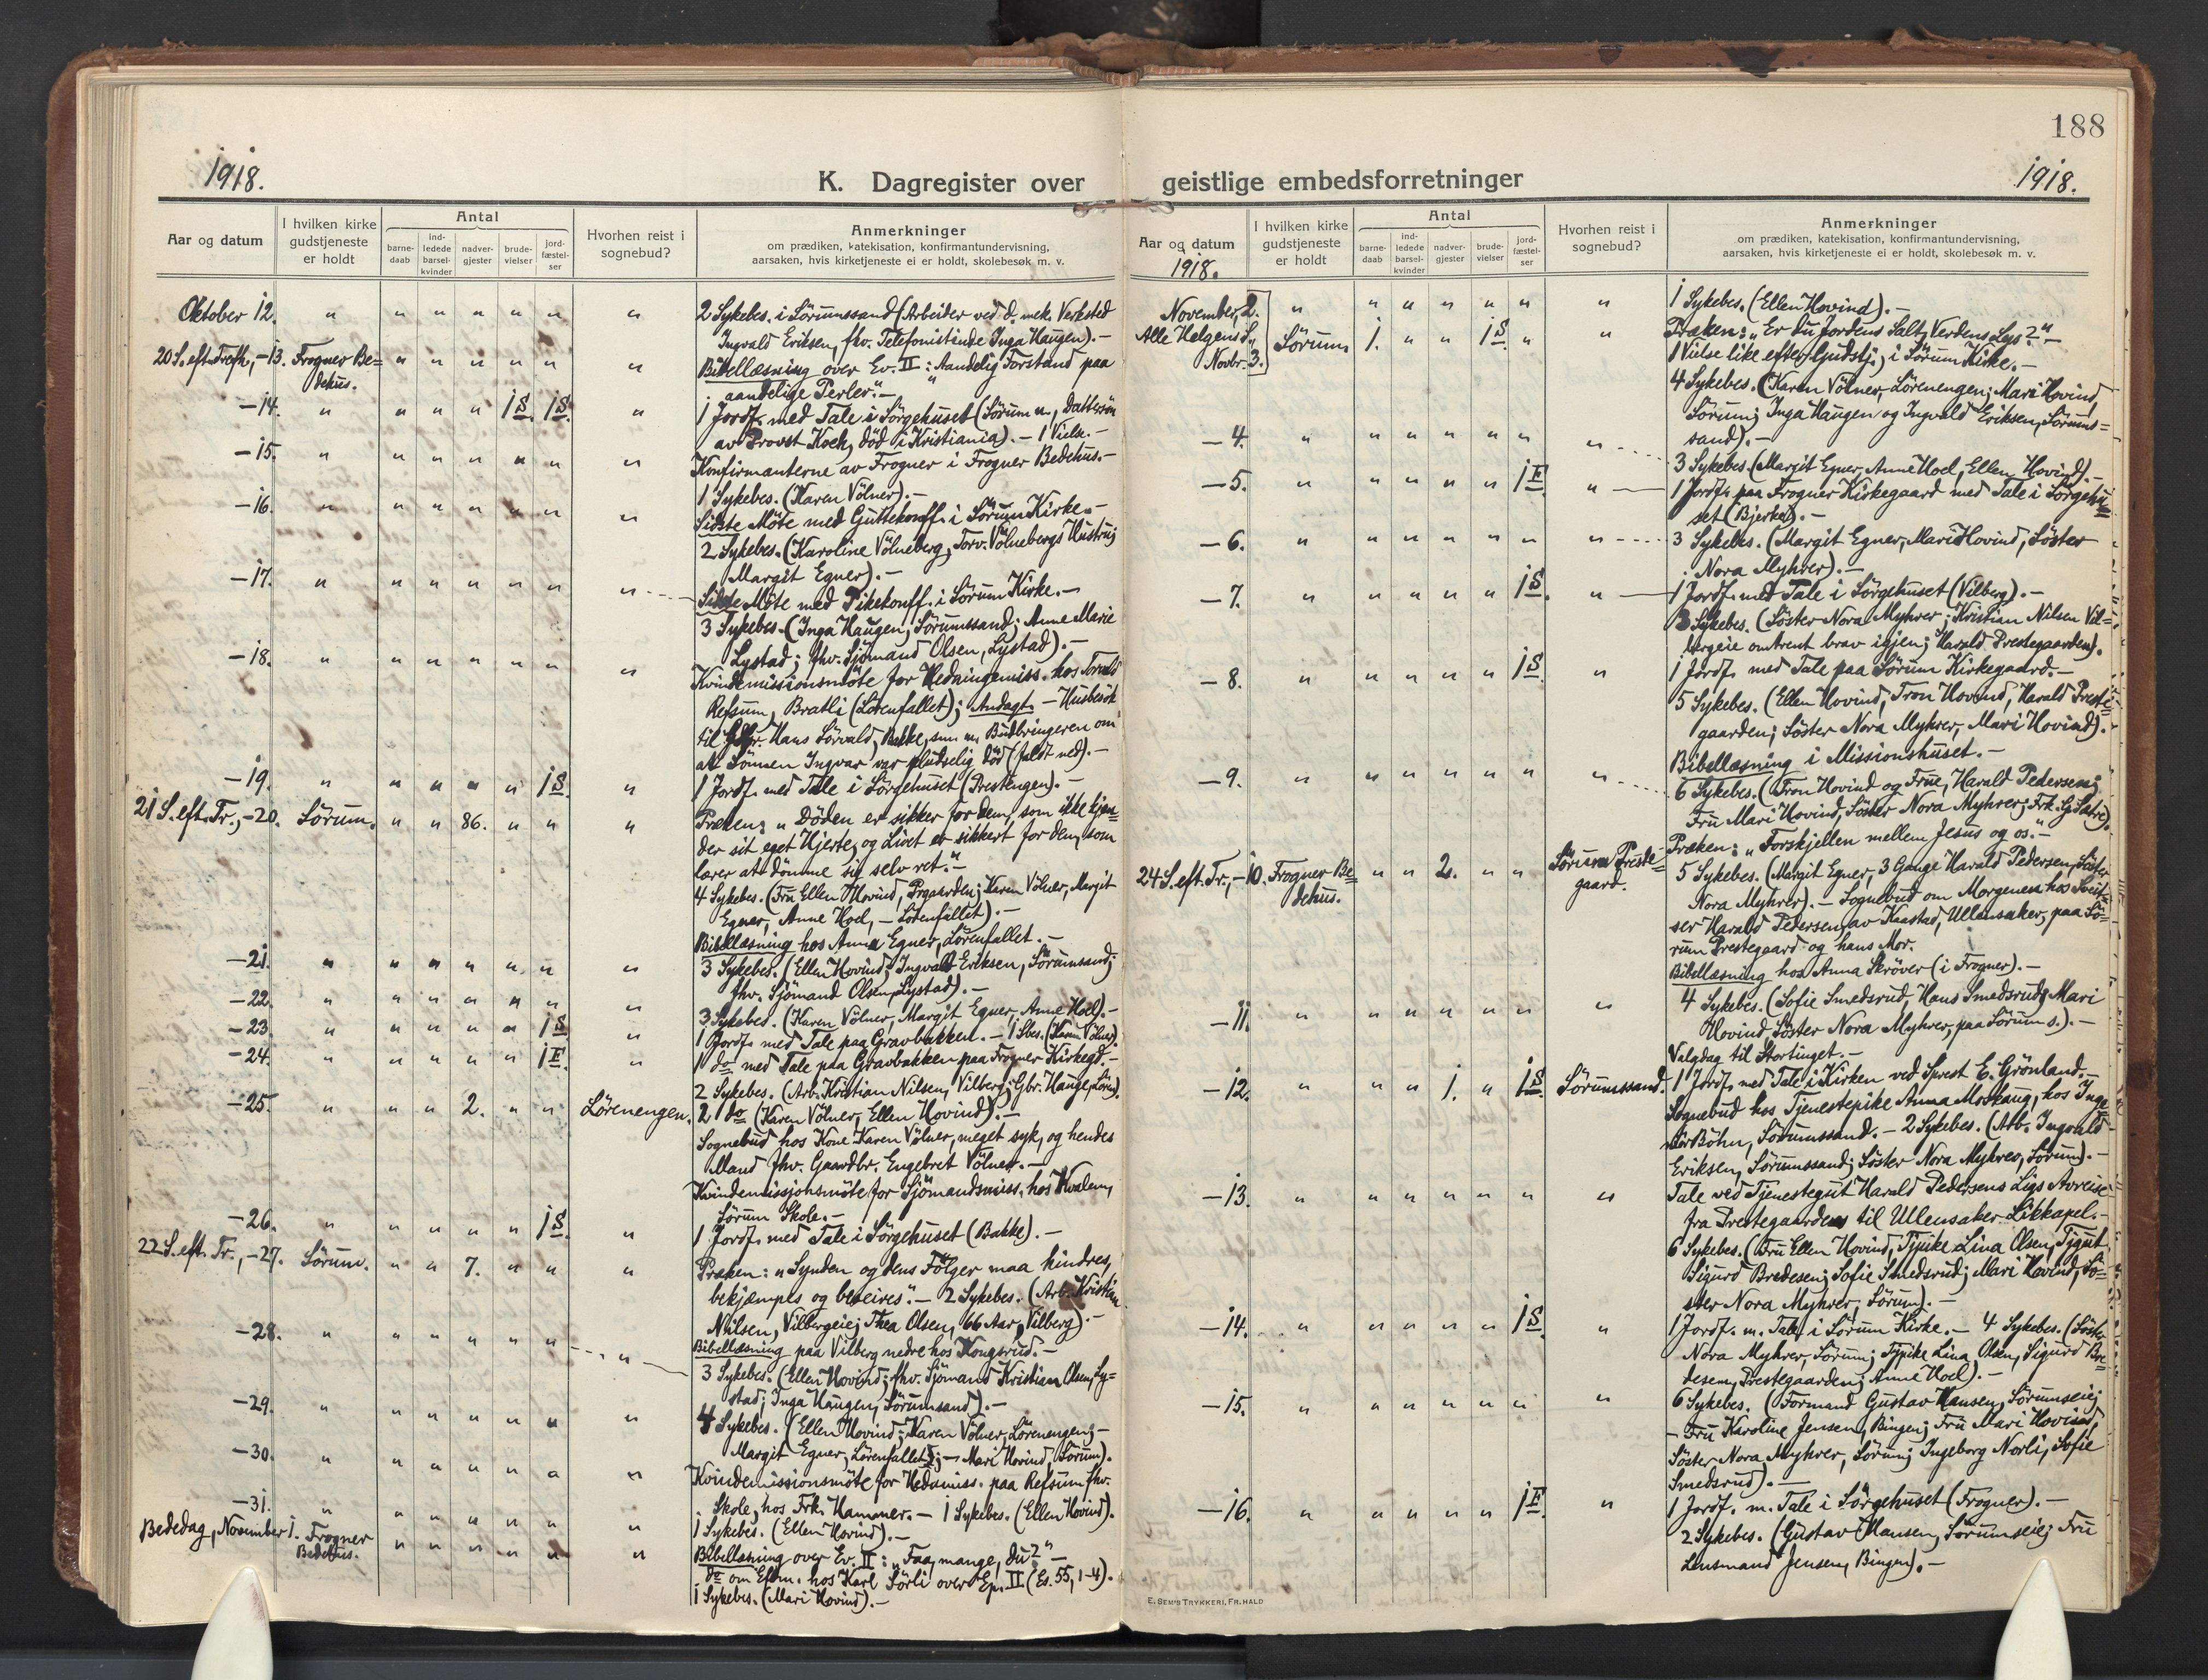 188
1918.
K. Dagregister over
Aar og datum
I hvilken kirke gudstjeneste er holdt
Antal
barne-daab
ind-ledede barsel-kvinder
nadver-gjester
brude-vielser
jord-fæstel-ser
Hvorhen reist i sognebud?
Anmerkninger
om prædiken, katekisation, konfirmantundervisning,
aarsaken, hvis kirketjeneste ei er holdt, skolebesøk m. v.
Oktober 12. " " " " " " "
2 Sykebes. i Sörumssand (Arbeider ved d. mek. Verksted
Ingvald Eriksen, fhv. Telefonistinde Inga Haugen). –
20 S. eft. Trefh., –13. Frogner Be= dehus. " " " " " "
Bibellæsning over Ev. II: „Aandelig Forstand paa
aandelige Perler." –
–14. " " " " 1 S. 1 S. "
1 Jordf. med Tale i Sörgehuset (Sörum n., Dattersön
av Provst Koch, död i Kristiania). – 1 Vielse. –
–15. " " " " " " "
Konfirmanterne av Frogner i Frogner Bedehus. –
1 Sykebes. (Karen Völner). –
–16. " " " " " " "
Sidste Möte med Guttekonff. i Sörum Kirke. –
2 Sykebes. (Karoline Völneberg, Torv. Völnebergs Hustru;
Margit Egner). –
–17. " " " " " " "
Sidste Möte med Pikekonff. i Sörum Kirke. –
3 Sykebes. (Inga Haugen, Sörumssand; Anne Marie
Lystad; fhv. Sjömand Olsen, Lystad). –
–18. " " " " " " "
Kvindemissionsmöte for Hedningemiss. hos Torvald
Refsum, Bratli (Lörenfallet); Andagt. – Husbesök
til Gdbr. Hans Sörvald, Bakke, som m. Budbringeren om
at Sönnen Ingvar var pludselig död (faldt ned). –
–19. " " " " " 1 S. "
1 Jordf. med Tale i Sörgehuset (Prestengen). –
21 S. eft. Tr., –20. Sörum. " " 86. " " "
Præken: „Döden er sikker for dem, som ikke kjen=
der sit eget Hjerte, og Livet er sikkert for dem, som
lærer at dömme sig selv ret." –
4 Sykebes. (Fru Ellen Hovind, Prgaarden; Karen Völner, Margit
Egner, Anne Hoel, – Lörenfallet). –
Bibellæsning hos Anna Egner, Lörenfallet. –
–21. " " " " " " "
3 Sykebes. (Ellen Hovind; Ingvald Eriksen, Sörumssand;
fhv. Sjömand Olsen, Lystad). –
–22. " " " " " " "
3 Sykebes. (Karen Völner, Margit Egner, Anne Hoel). –
–23. " " " " " 1 S. "
1 Jordf. med Tale paa Gravbakken. – 1 Sbes. (Karen Völner).
–24. " " " " " 1 F. "
1 do med Tale paa Gravbakken paa Frogner Kirkegd. –
2 Sykebes. (Arb. Kristian Nilsen, Vilberg; Gbr. Hauge, Lören).
–25. " " " 2. " " Lörenengen.
2 do (Karen Völner, Ellen Hovind). –
Sognebud hos Kone Karen Völner, meget syk, og hendes
Mand fhv. Gaardbr. Engebret Völner. –
Kvindemissjonsmöte for Sjömandsmiss. hos Kvalem,
Sörum Skole. –
–26. " " " " " 1 S. "
1 Jordf. med Tale i Sörgehuset (Bakke). –
22 S. eft. Tr., –27. Sörum. " " 7. " " "
Præken: „Synden og dens Fölger maa hindres,
bekjæmpes og beseires". – 2 Sykebes. (Arb. Kristian
Nilsen, Vilbergeie; Thea Olsen, 66 Aar, Vilberg). –
–28. " " " " " " "
Bibellæsning paa Vilberg nedre hos Kongsrud. –
3 Sykebes. (Ellen Hovind; fhv. Sjömand Kristian Olsen, Ly=
stad; Inga Haugen, Sörumssand). –
–29. " " " " " " "
4 Sykebes. (Ellen Hovind; Karen Völner, Lörenengen; –
Margit Egner, Lörenfallet; – Mari Hovind, Sörum).
–30. " " " " " " "
Kvindemissionsmöte for Hedn.miss. paa Refsum fhv.
Skole, hos Frk. Hammer. – 1 Sykebes. (Ellen Hovind).
–31. " " " " " " "
1 Sykebes. (Ellen Hovind). –
Bededag, November 1. Frogner Bedehus. " " " " " "
Bibellæsning over Ev. II: „Faa, mange, du?" –
do om Efm. hos Karl Sörli over Ep. II (Es. 55, 1-4).
1 Sykebes. (Mari Hovind). –
geistlige embedsforretninger
1918.
Aar og datum
1918.
I hvilken kirke gudstjeneste er holdt
Antal
barne-daab
ind-ledede barsel-kvinder
nadver-gjester
brude-vielser
jord-fæstel-ser
Hvorhen reist i sognebud?
Anmerkninger
om prædiken, katekisation, konfirmantundervisning,
aarsaken, hvis kirketjeneste ei er holdt, skolebesøk m. v.
November, 2. " " " " " " "
1 Sykebes. (Ellen Hovind). –
Alle Helgens S., Novbr. 3. Sörum. 1. " " 1 S. " "
Præken: „Er du Jordens Salt, Verdens Lys?" –
1 Vielse like efter Gudstj. i Sörum Kirke. –
4 Sykebes. (Karen Völner, Lörenengen; Mari Hovind,
Sörum; Inga Haugen og Ingvald Eriksen, Sörums=
sand). –
–4. " " " " " " "
3 Sykebes. (Margit Egner, Anne Hoel, Ellen Hovind). –
–5. " " " " " 1 F. "
1 Jordf. paa Frogner Kirkegaard med Tale i Sörgehu=
set (Bjerke). –
–6. " " " " " " "
3 Sykebes. (Margit Egner, Mari Hovind, Söster
Nora Myhrer). –
–7. " " " " " 1 S. "
1 Jordf. med Tale i Sörgehuset (Vilberg). –
3 Sykebes. (Söster Nora Myhrer; Kristian Nilsen Vil=
bergeie omtrent brav igjen; Harald Prestegaarden).
–8. " " " " " 1 S. "
1 Jordf. med Tale paa Sörum Kirkegaard. –
5 Sykebes. (Ellen Hovind, Tron Hovind, Harald Preste=
gaarden; Söster Nora Myhrer, Mari Hovind).
Bibellæsning i Missionshuset. –
–9. " " " " " " "
6 Sykebes. (Tron Hovind og Frue, Harald Pedersen;
Fru Mari Hovind, Söster Nora Myhrer; Frk. G. Sætre).
24 S. eft. Tr., –10. Frogner Be= dehus. " " 2. " " Sörum Preste= gaard.
Præken: „Forskjellen mellem Jesus og os." –
5 Sykebes. (Margit Egner, 3 Gange Harald Pedersen, Söster
Nora Myhrer). – Sognebud om Morgenen hos Sveit=
ser Harald Pedersen, av Kaastad, Ullensaker, paa Sö=
rum Prestegaard og hans Mor.
Bibellæsning hos Anna Skröver (i Frogner). –
–11. " " " " " " "
4 Sykebes. (Sofie Smedsrud, Hans Smedsrud, Mari
Hovind, Söster Nora Myhrer, paa Sörum s.). –
Valgdag til Stortinget. –
–12. " " " 1. " 1 S. Sörumssand.
1 Jordf. med Tale i Kirken ved Sprest E. Grönland. –
Sognebud hos Tjenestepike Anna Moskaug, hos Inge=
niör Böhn, Sörumssand. – 2 Sykebes. (Arb. Ingvald
Eriksen, Sörumssand; Söster Nora Myhrer, Sörum). –
–13. " " " " " " "
Tale ved Tjenestegut Harald Pedersens Ligs Avreise
fra Prestegaarden til Ullensaker Likkapel. –
6 Sykebes. (Fru Ellen Hovind, Tjpike Lina Olsen, Tjgut
Sigurd Bredesen; Sofie Smedsrud; Mari Hovind, Sö=
ster Nora Myhrer, Sörum). –
–14. " " " " " 1 S. "
1 Jordf. m. Tale i Sörum Kirke. – 4 Sykebes. (Söster
Nora Myhrer, Sörum; Tjpike Lina Olsen, Sigurd Bre=
desen, Prestegaarden; Anne Hoel). –
–15. " " " " " " "
6 Sykebes. (Formand Gustav Hansen, Sörumseie;
– Fru Karoline Jensen, Bingen; Fru Mari Hovind,
Söster Nora Myhrer, Sörum; Ingeborg Norli, Sofie
Smedsrud). –
–16. " " " " " 1 F. "
1 Jordf. m. Tale i Sörgehuset (Frogner). –
2 Sykebes. (Gustav Hansen, Sörumseie; Fru
Lensmand Jensen, Bingen). –
E. SEM'S TRYKKERI, FR.HALD